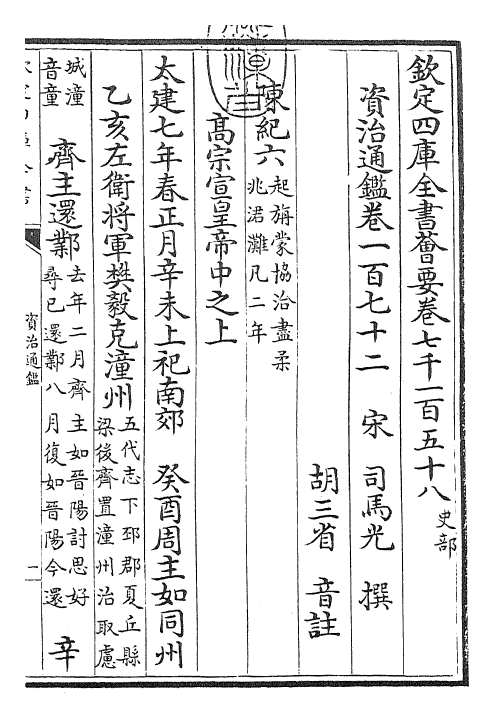 欽定四庫全書薈要卷七千一百五十八 史部
資治通鑑卷一百七十二 宋 司馬光 撰
胡三省 音註
陳紀六 起旃蒙協洽盡柔
兆涒灘凡二年
高宗宣皇帝中之上
太建七年春正月辛未上祀南郊 癸酉周主如同州
乙亥左衛將軍樊毅克潼州 五代志下邳郡夏丘縣
梁後齊置潼州治取慮
城潼
音童 齊主還鄴 去年二月齊主如晉陽討思好
尋已還鄴八月復如晉陽今還 辛
資治通鑑
一